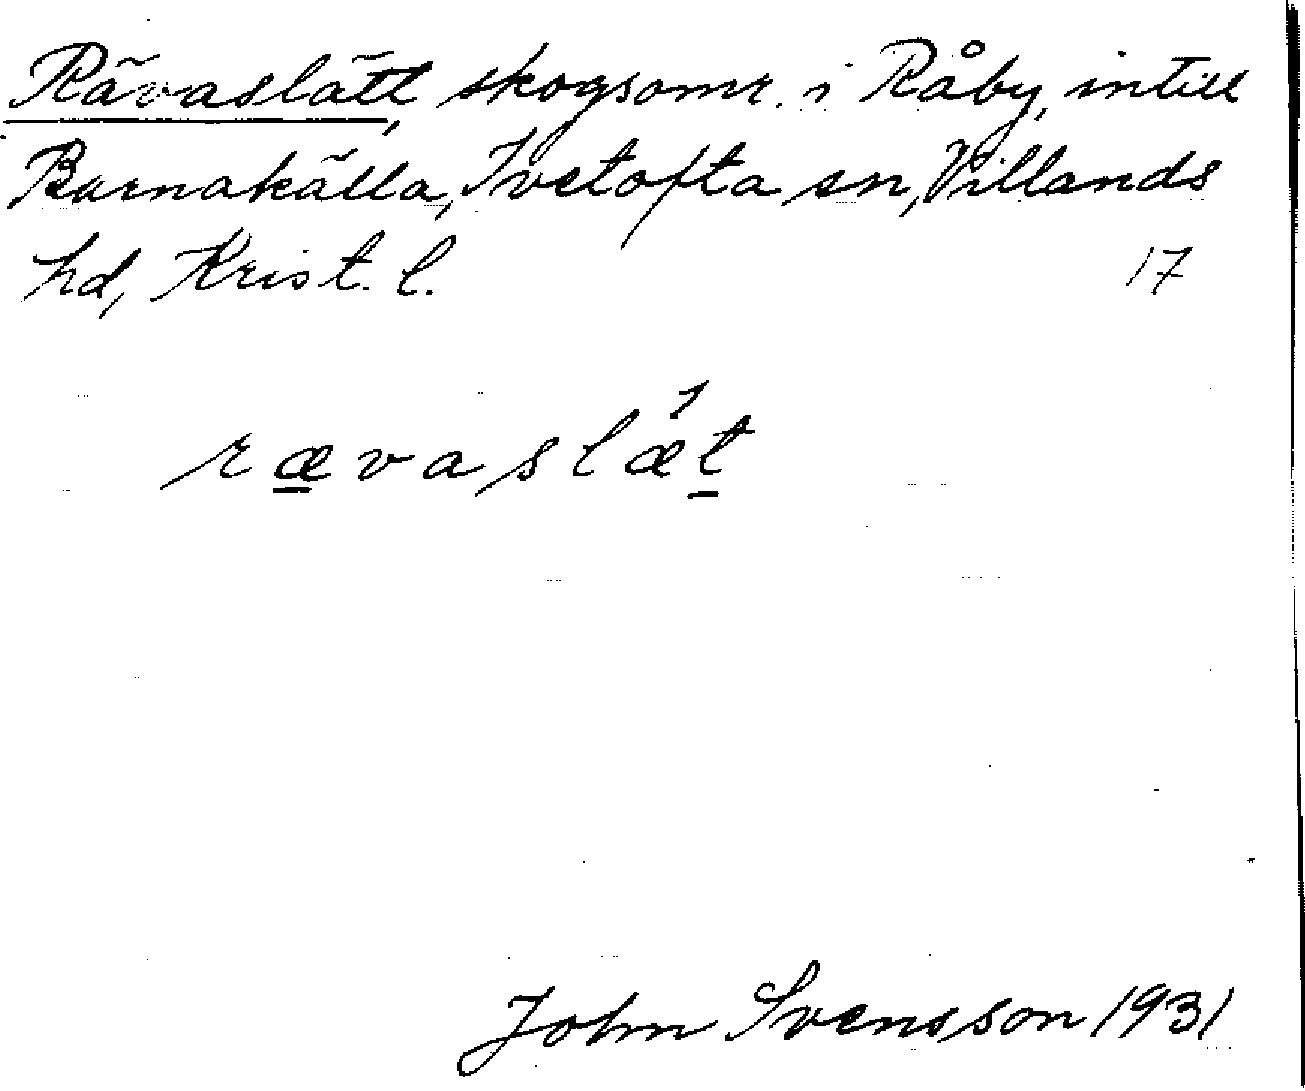 Rävaslätt, skogsomr. i Råby, intill
Barnakälla, Ivetofta sn, Villands
hd, Krist. l. 17
rævaslǽt
John Svensson 1931